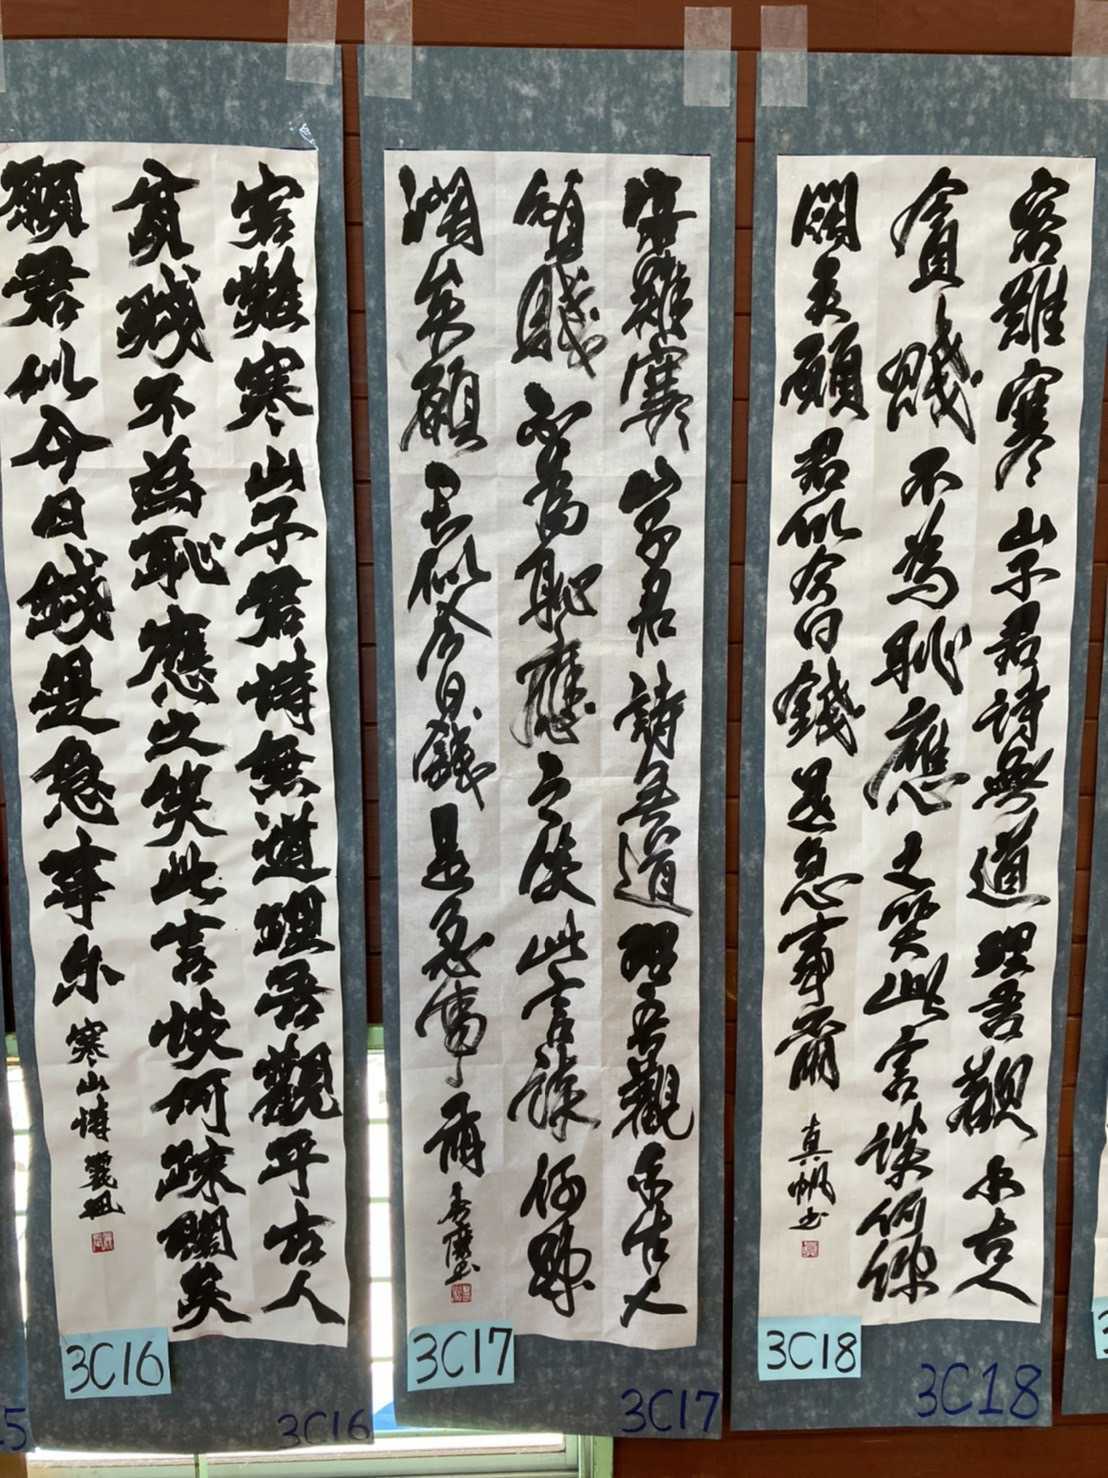 客難寒山子君詩無道理吾觀乎古人
貧賤不為恥應之笑此言談何疎
闊矣願君似今日錢是急事爾
真帆書
3C18
3C18
客難寒山子君詩無道理吾觀乎古人
貧賤不為恥應之笑此言談何疎
闊矣願君似今日錢是急事爾
3C17
3C17
客難寒山子君詩無道理吾觀乎古人
貧賤不為恥應之笑此言談何疎闊矣
願君似今日錢是急事尔
寒山詩
3C16
3C16